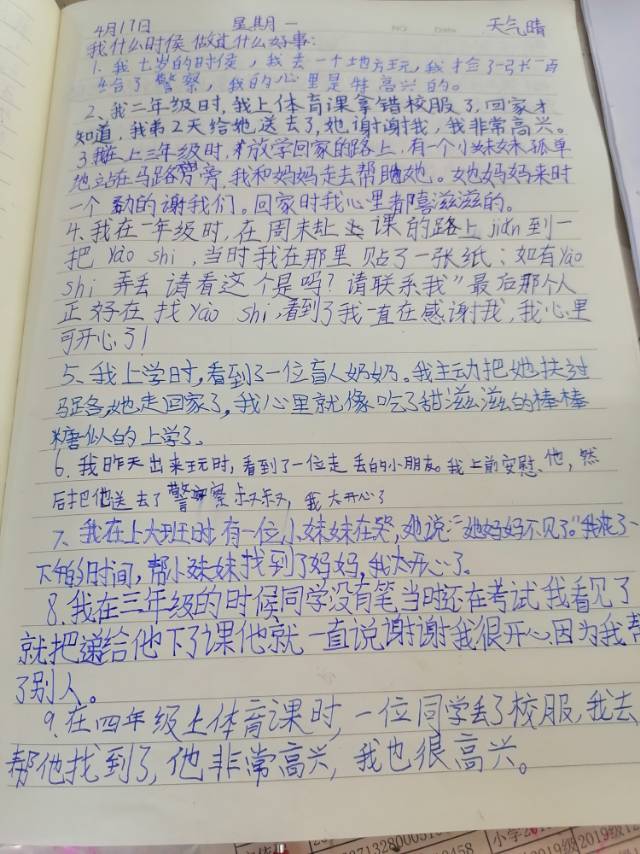 4月17日 星期一 NO DATE 天气晴
我什么时候做过什么好事:
1、我七岁的时候,我去一个地方玩,我捡了一张一百
给了警察,我的心里是特高兴的。
2、我二年级时,我上体育课拿错校服了,回家才
知道,我第2天给她送去了,她谢谢我,我非常高兴。
3、我在上三年级时,放学回家的路上,有一个小妹妹孤单
地立站在马路旁,我和妈妈走去帮她。她妈妈来时
一个劲的谢我们。回家时我心里都喜滋滋的。
4、我在一年级时,在周末赴课的路上jiǎn到一
把yào shi,当时我在那里贴了一张纸:如有yào
shi弄丢请看这个是吗?请联系我"最后那个人
正好在找yào shi,看到了我一直在感谢我,我心里
可开心了!
5、我上学时,看到了一位盲人奶奶。我主动把她扶过
马路,她走回家了,我心里就像吃了甜滋滋的棒棒
糖似的上学了。
6、我昨天出来玩时,看到了一位走丢的小朋友。我上前安慰他,然
后把他送去了警察叔叔,我太开心了
7、我在上大班时有一位小妹妹在哭,她说:"她妈妈不见了。"我花了一
下午的时间,帮小妹妹找到了妈妈,我太开心了。
8、我在三年级的时候同学没有笔当时还在考试我看见了
就把递给他下了课他就一直说谢谢我很开心因为我帮
了别人。
9、在四年级上体育课时,一位同学丢了校服,我去
帮他找到了,他非常高兴,我也很高兴。
713280005
458
小学20
2019级
2019级12